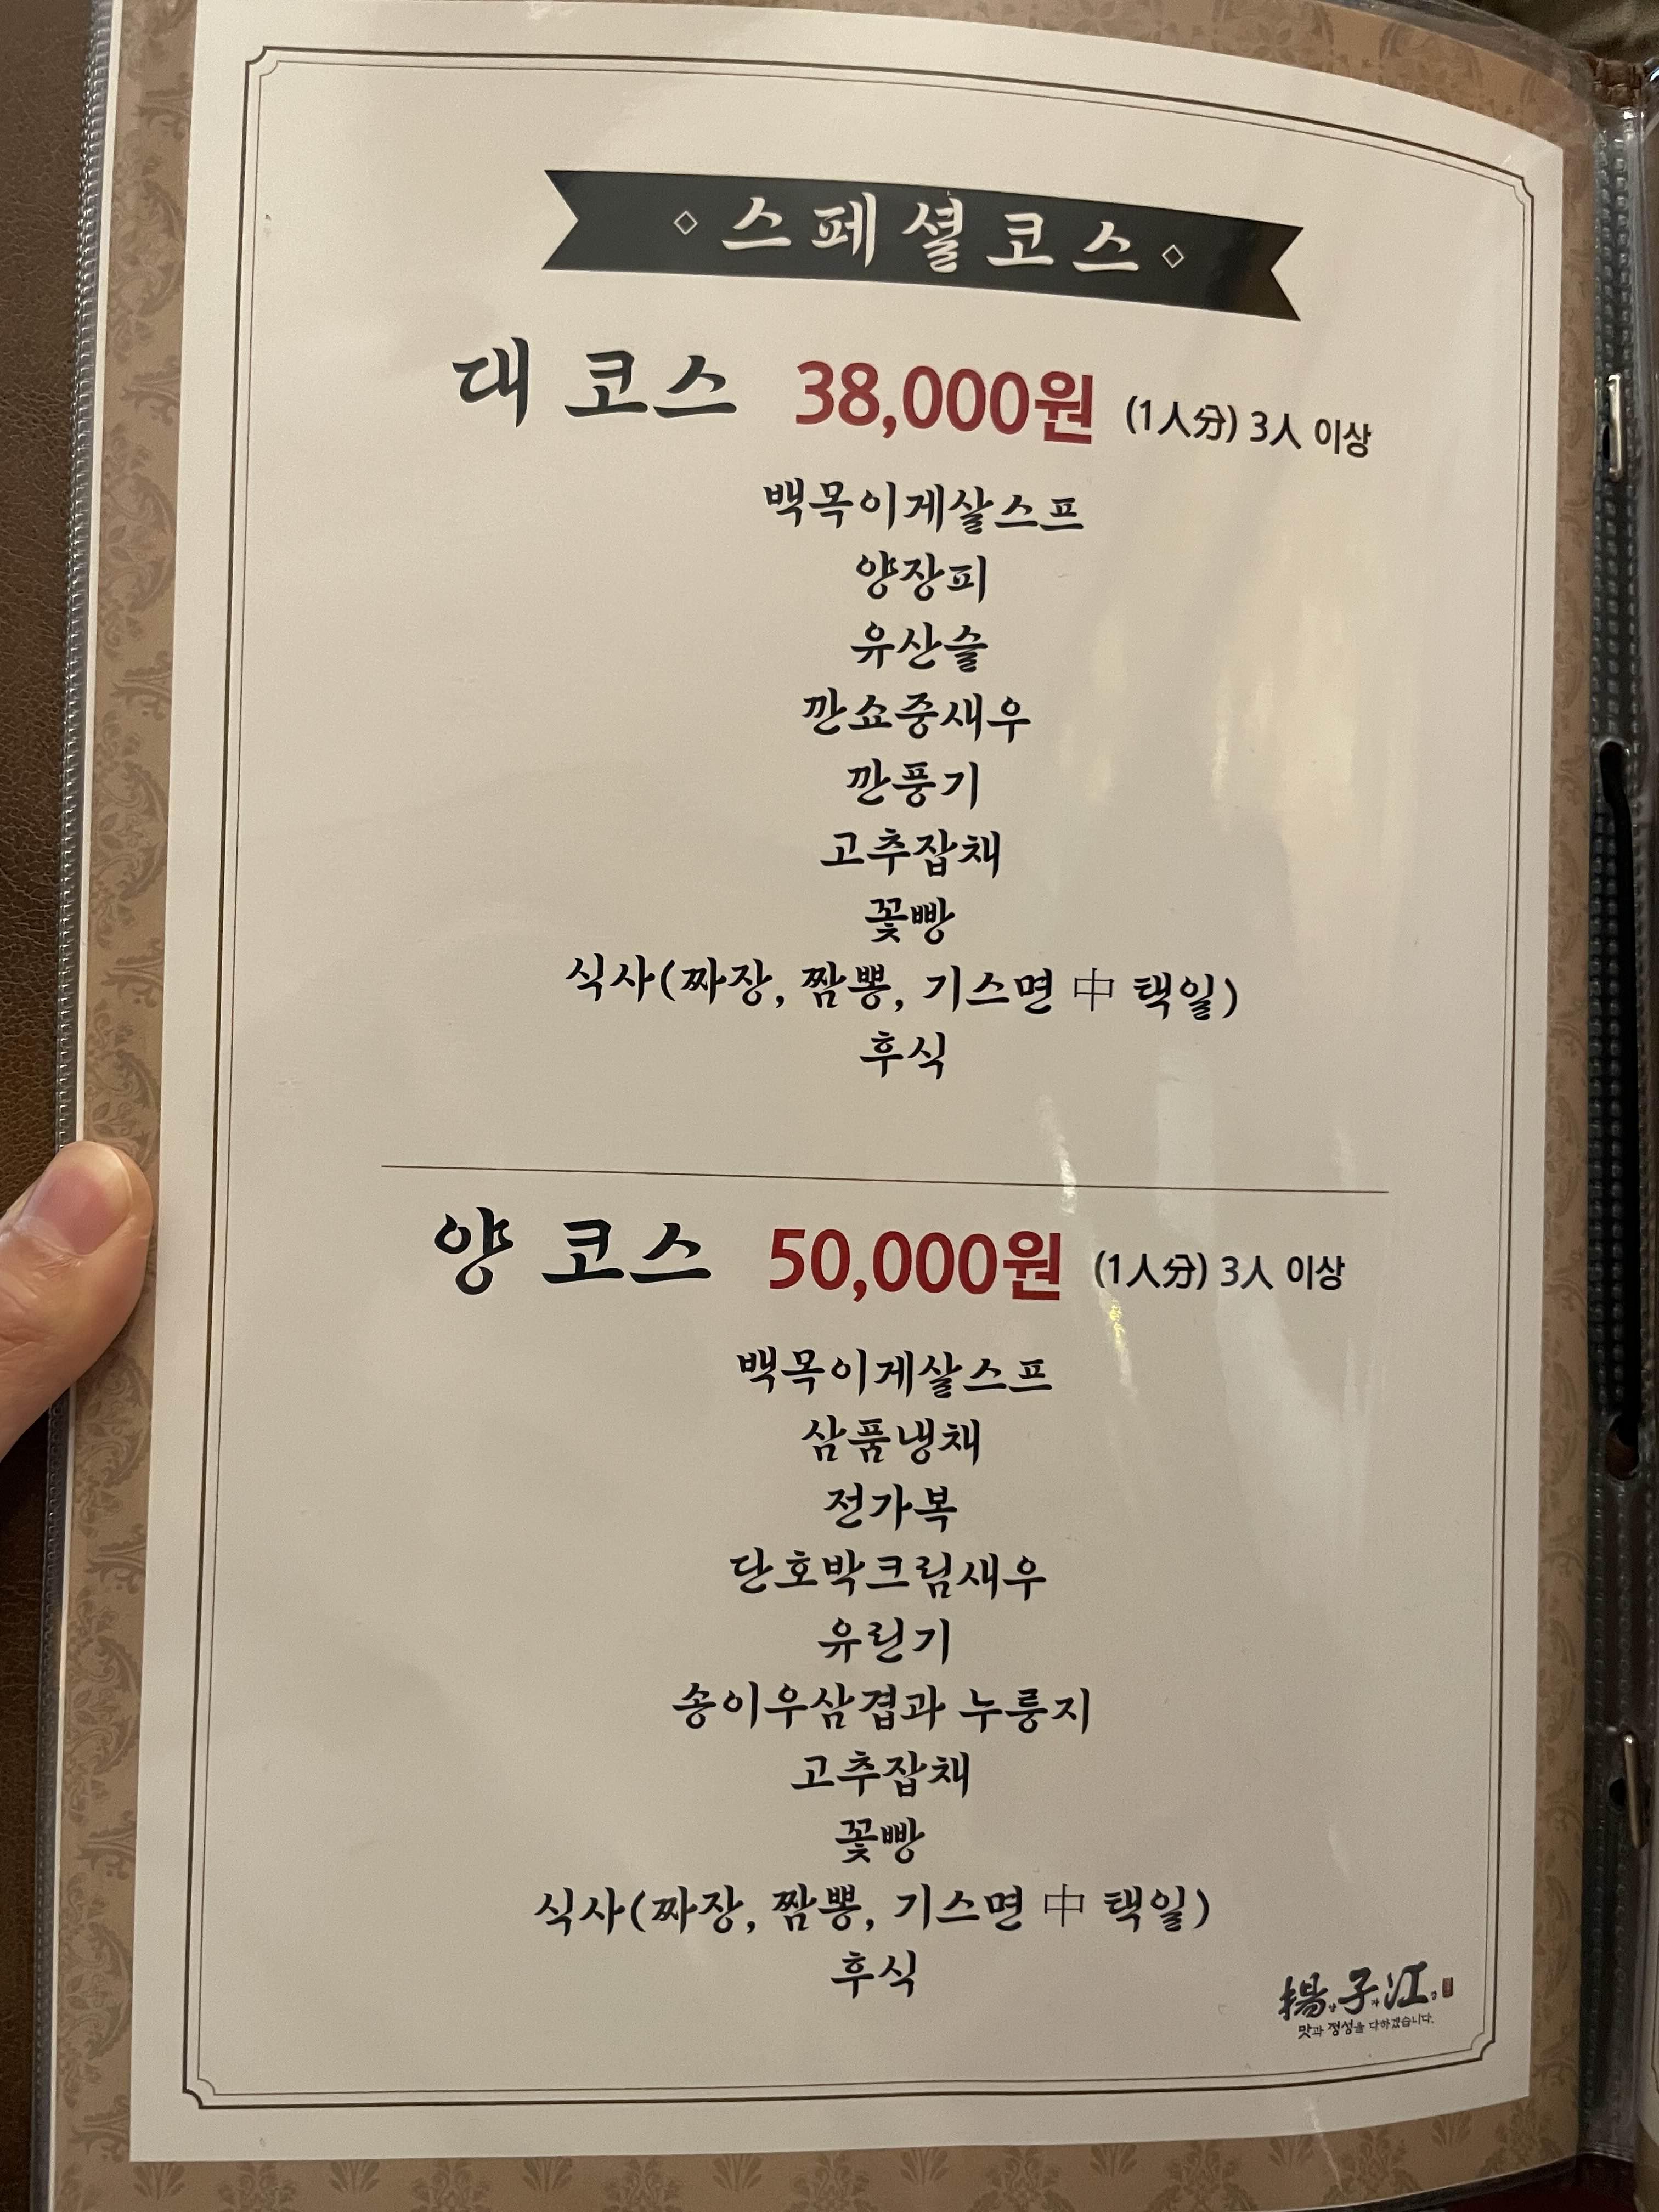 ◇ 스페셜코스 ◇
대 코스 38,000원 (1人分) 3人 이상
백목이게살스프
양장피
유산슬
깐쇼중새우
깐풍기
고추잡채
꽃빵
식사(짜장, 짬뽕, 기스면 中 택일)
후식
양 코스 50,000원 (1人分) 3人 이상
백목이게살스프
삼품냉채
전가복
단호박크림새우
유린기
송이우삼겹과 누룽지
고추잡채
꽃빵
식사(짜장, 짬뽕, 기스면 中 택일)
후식
揚양子자江강
맛과 정성을 다하겠습니다.